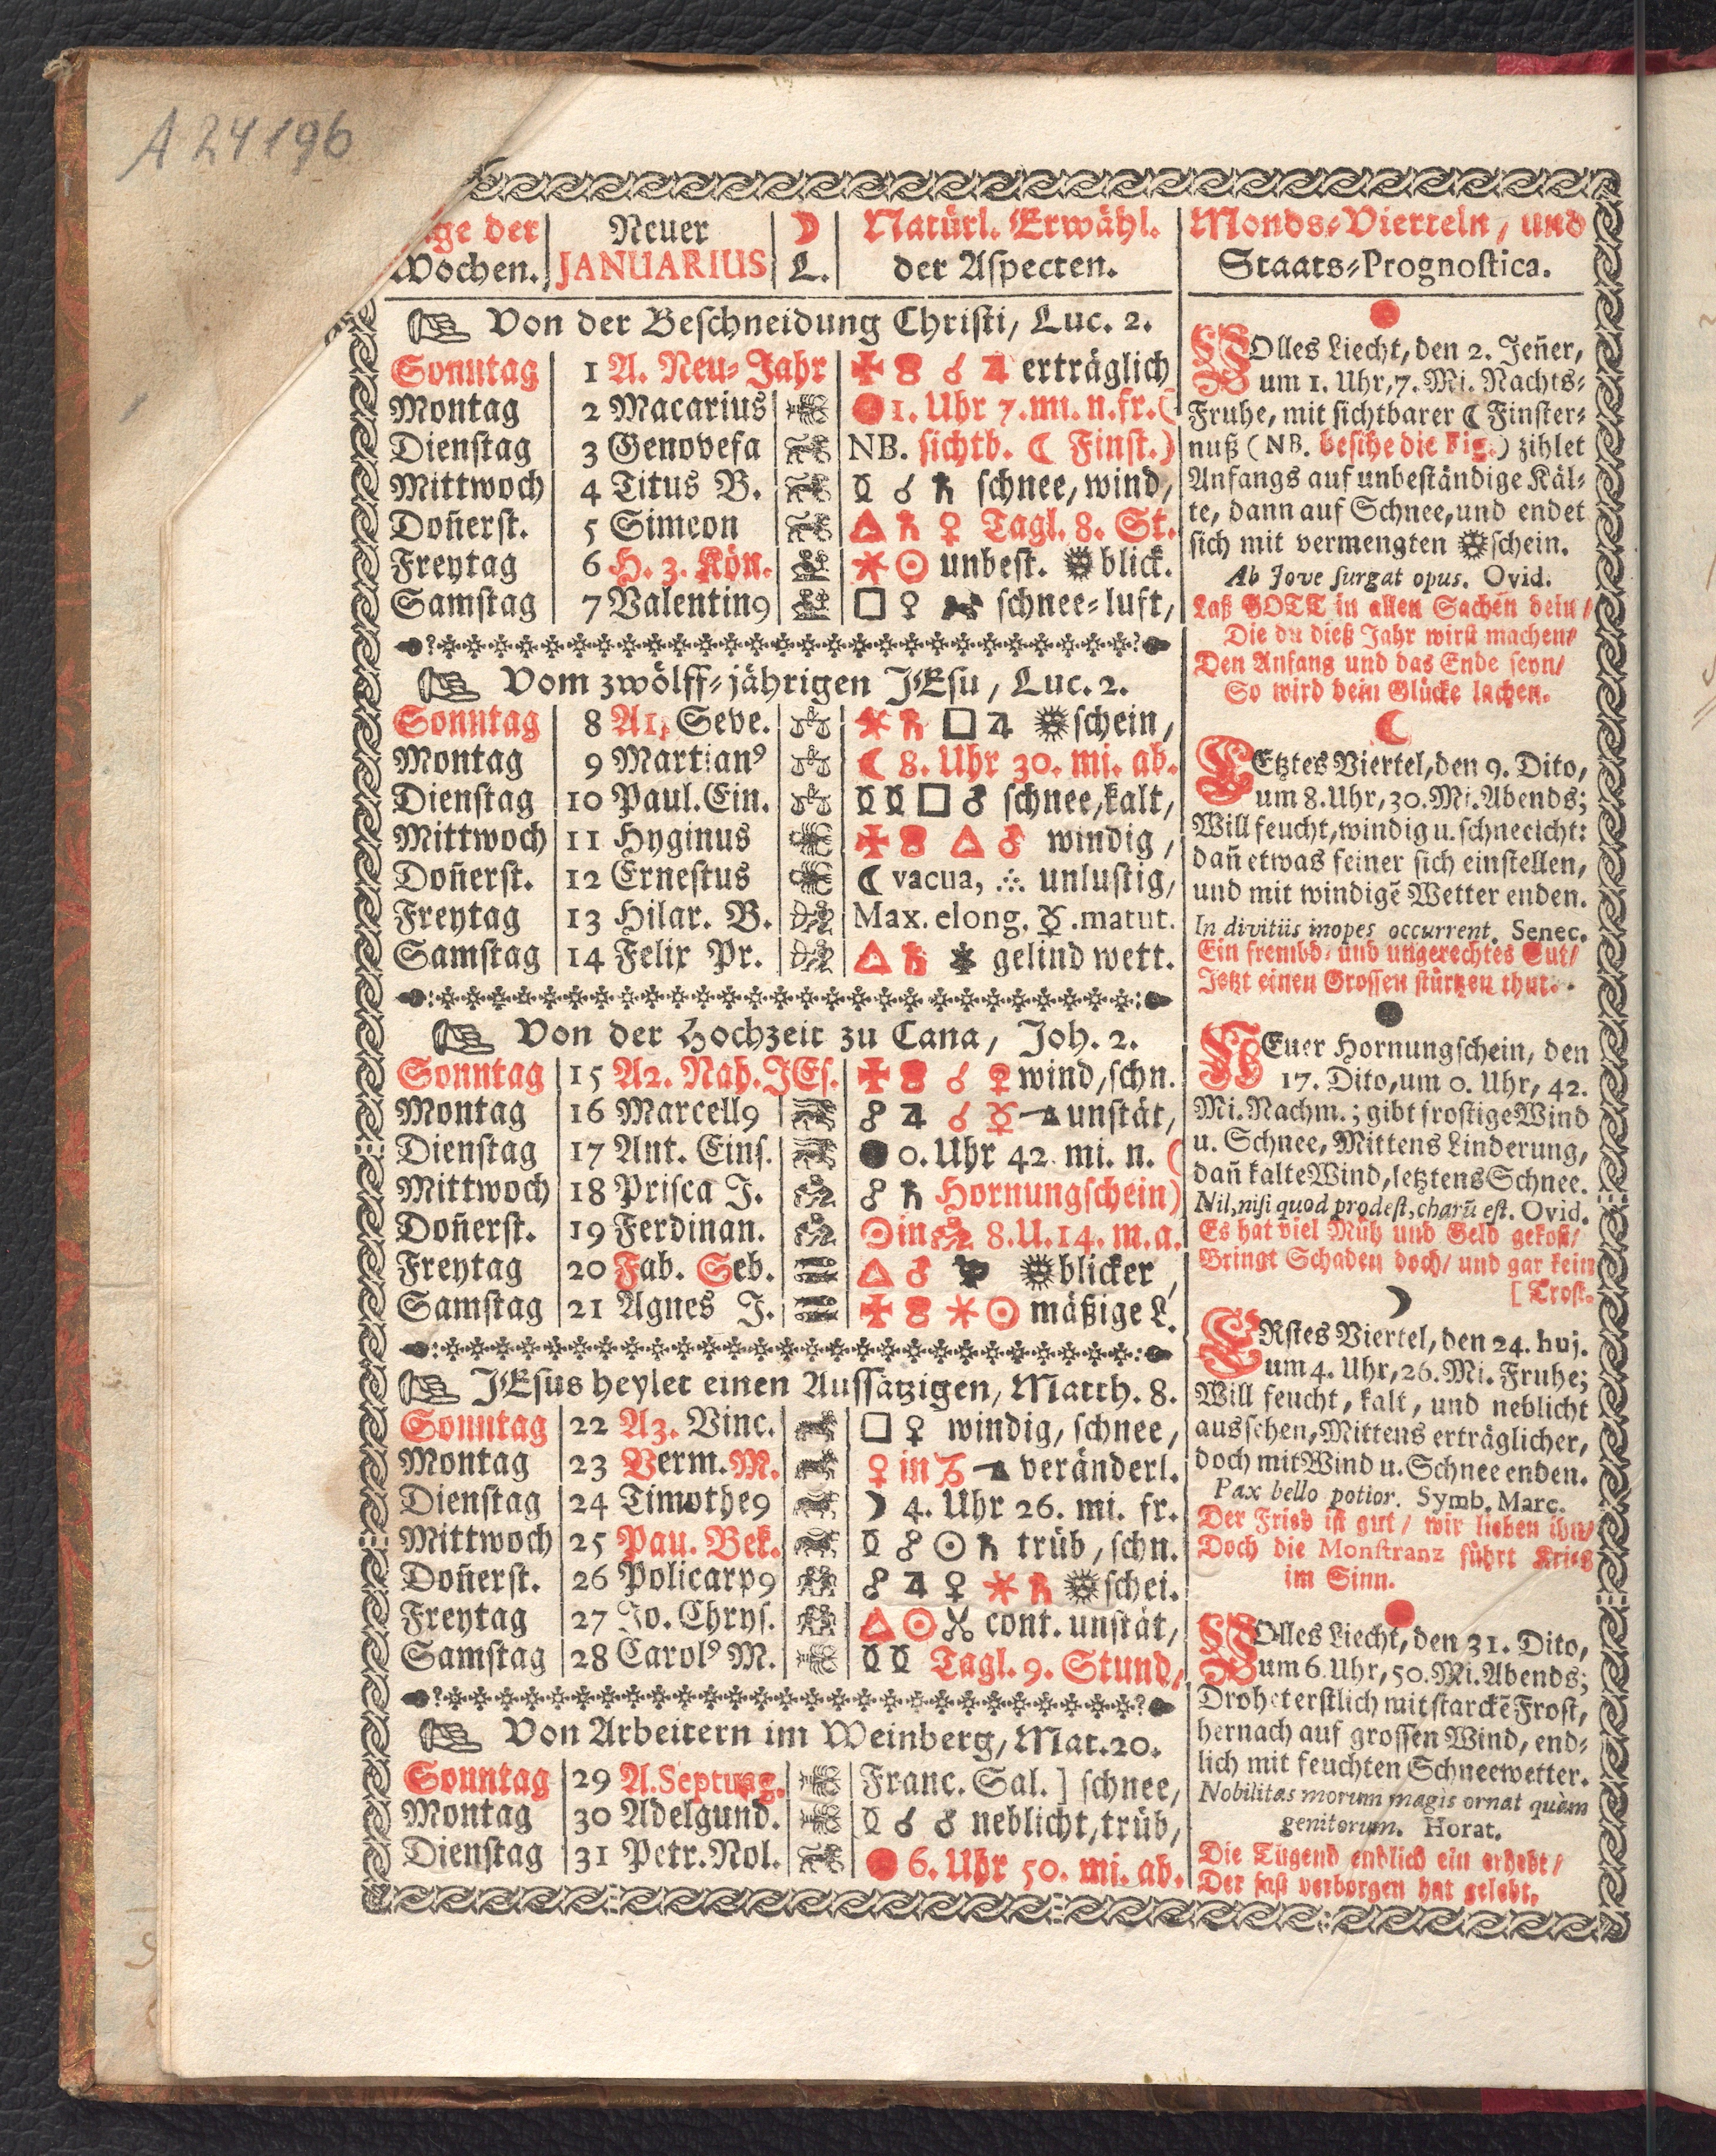 A 24196
ge der Neuer ☽ Natürl. Erwähl.
Wochen. JANUARIUS L. der Aspecten.
Von der Beschneidung Christi, Luc. 2.
Sonntag 1 A. Neu-Jahr ☌ ♃ erträglich
Montag 2 Macarius 1. Uhr 7. mi. n. fr. (
Dienstag 3 Genovefa NB. sichtb. ☾ Finst.)
Mittwoch 4 Titus B. ☌ ♄ schnee, wind,
Don̄erst. 5 Simeon △ ♄ ♀ Tagl. 8. St.
Freytag 6 H. 3. Kön. ⚹ ☉ unbest. blick.
Samstag 7 Valentin9 □ ♀ schnee-luft,
Vom zwölff-jährigen JEsu, Luc. 2.
Sonntag 8 A1. Seve. ⚹ ♄ □ ♃ schein,
Montag 9 Martian9 ☾ 8. Uhr 30. mi. ab.
Dienstag 10 Paul. Ein. □ ♂ schnee, kalt,
Mittwoch 11 Hyginus △ ♂ windig,
Don̄erst. 12 Ernestus ☾ vacua, ∴ unlustig,
Freytag 13 Hilar. B. Max. elong. ☿. matut.
Samstag 14 Felix Pr. △ ♄ gelind wett.
Von der Hochzeit zu Cana, Joh. 2.
Sonntag 15 A2. Nah. JEs. ☌ ♀ wind, schn.
Montag 16 Marcell9 ☍ ♃ ☌ ☿ unstät,
Dienstag 17 Ant. Eins. ● 0. Uhr 42. mi. n. (
Mittwoch 18 Prisca J. ☍ ♄ Hornungschein)
Don̄erst. 19 Ferdinan. ☉ in ♒ 8. U. 14. m. a.
Freytag 20 Fab. Seb. △ ♂ blicker,
Samstag 21 Agnes J. ⚹ ☉ mäßige L.
JEsus heylet einen Aussätzigen, Matth. 8.
Sonntag 22 A3. Vinc. □ ♀ windig, schnee,
Montag 23 Verm. M. ♀ in ♑ veränderl.
Dienstag 24 Timothe9 ☽ 4. Uhr 26. mi. fr.
Mittwoch 25 Pau. Bek. ☍ ☉ ♄ trüb, schn.
Don̄erst. 26 Policarp9 ☍ ♃ ♀ ⚹ ♄ schei.
Freytag 27 Jo. Chrys. △ ☉ cont. unstät,
Samstag 28 Carol9 M. Tagl. 9. Stund,
Von Arbeitern im Weinberg, Mat. 20.
Sonntag 29 A. Septuag. Franc. Sal. ] schnee,
Montag 30 Adelgund. ☌ ♂ neblicht, trüb,
Dienstag 31 Petr. Nol. 6. Uhr 50. mi. ab.
Monds-Vierteln, und
Staats-Prognostica.
VOlles Liecht, den 2. Jen̄er,
um 1. Uhr, 7. Mi. Nachts-
Fruhe, mit sichtbarer ☾ Finster-
nuß (NB. besihe die Fig.) zihlet
Anfangs auf unbeständige Käl-
te, dann auf Schnee, und endet
sich mit vermengten schein.
Ab Jove surgat opus. Ovid.
Laß GOTT in allen Sachen dein /
Die du dieß Jahr wirst machen/
Den Anfang und das Ende seyn/
So wird dein Glücke lachen.
LEtztes Viertel, den 9. Dito,
um 8. Uhr, 30. Mi. Abends;
Will feucht, windig u. schneeicht:
dan̄ etwas feiner sich einstellen,
und mit windigē Wetter enden.
In divitiis inopes occurrent. Senec.
Ein frembd- und ungerechtes Gut/
Jetzt einen Grossen stürtzen thut.
NEuer Hornungschein, den
17. Dito, um 0. Uhr, 42.
Mi. Nachm.; gibt frostige Wind
u. Schnee, Mittens Linderung,
dan̄ kalte Wind, letztens Schnee.
Nil, nisi quod prodest, charū est. Ovid.
Es hat viel Müh und Geld gekost/
Bringt Schaden doch/ und gar kein
[ Trost.
ERstes Viertel, den 24. huj.
um 4. Uhr, 26. Mi. Fruhe;
Will feucht, kalt, und neblicht
aussehen, Mittens erträglicher,
doch mit Wind u. Schnee enden.
Pax bello potior. Symb. Marc.
Der Fried ist gut / wir lieben ihn/
Doch die Monstranz führt Krieg
im Sinn.
VOlles Liecht, den 31. Dito,
um 6. Uhr, 50. Mi. Abends;
Drohet erstlich mit starckē Frost,
hernach auf grossen Wind, end-
lich mit feuchten Schneewetter.
Nobilitas morum magis ornat quàm
genitorum. Horat.
Die Tugend endlich ein erhebt/
Der fast verborgen hat gelebt.